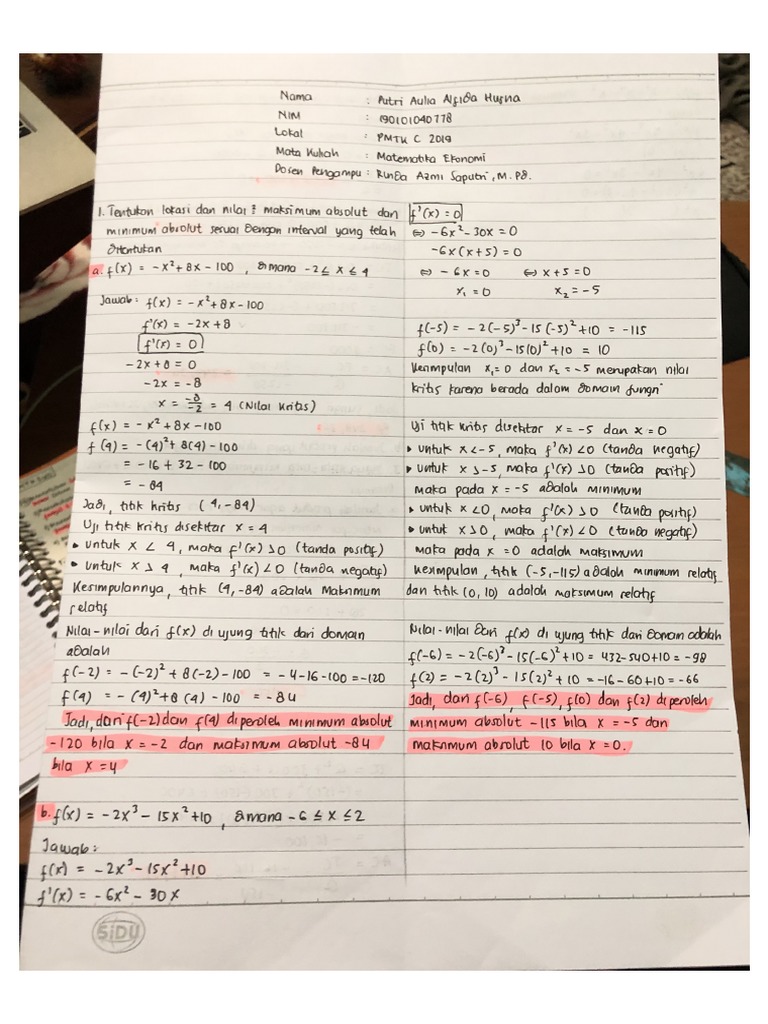 Nama : Putri Aulia Alfida Husna
NIM : 190101040778
Lokal : PMTK C 2019
Mata Kuliah : Matematika Ekonomi
Dosen Pengampu : Runda Azmi Saputri, M.Pd.
1. Tentukan lokasi dan nilai² maksimum absolut dan
minimum absolut sesuai dengan interval yang telah
ditentukan
a. f(x) = -x²+8x-100 , dimana -2 ≤ x ≤ 4
Jawab: f(x) = -x²+8x-100
f'(x) = -2x+8
f'(x) = 0
-2x+8 = 0
-2x = -8
x = -8/-2 = 4 (Nilai Kritis)
f(x) = -x²+8x-100
f(4) = -(4)²+8(4)-100
= -16+32-100
= -84
Jadi, titik kritis (4,-84)
Uji titik kritis disekitar x = 4
• untuk x < 4, maka f'(x) > 0 (tanda positif)
• untuk x > 4, maka f'(x) < 0 (tanda negatif)
Kesimpulannya, titik (4,-84) adalah maksimum
relatif
Nilai-nilai dari f(x) di ujung titik dari domain
adalah
f(-2) = -(-2)²+8(-2)-100 = -4-16-100 = -120
f(4) = -(4)²+8(4)-100 = -84
Jadi, dari f(-2) dan f(4) diperoleh minimum absolut
-120 bila x = -2 dan maksimum absolut -84
bila x = 4
b. f(x) = -2x³-15x²+10 , dimana -6 ≤ x ≤ 2
Jawab:
f(x) = -2x³-15x²+10
f'(x) = -6x²-30x
f'(x) = 0
⇔ -6x²-30x = 0
-6x(x+5) = 0
⇔ -6x = 0 ⇔ x+5 = 0
x₁ = 0 x₂ = -5
f(-5) = -2(-5)³-15(-5)²+10 = -115
f(0) = -2(0)³-15(0)²+10 = 10
Kesimpulan x₁=0 dan x₂ = -5 merupakan nilai
kritis karena berada dalam domain fungsi
Uji titik kritis disekitar x = -5 dan x = 0
• untuk x < -5, maka f'(x) < 0 (tanda negatif)
• untuk x > -5, maka f'(x) > 0 (tanda positif)
maka pada x = -5 adalah minimum
• untuk x < 0, maka f'(x) > 0 (tanda positif)
• untuk x > 0, maka f'(x) < 0 (tanda negatif)
maka pada x = 0 adalah maksimum
Kesimpulan, titik (-5,-115) adalah minimum relatif
dan titik (0,10) adalah maksimum relatif
Nilai-nilai dari f(x) di ujung titik dari domain adalah
f(-6) = -2(-6)³-15(-6)²+10 = 432-540+10 = -98
f(2) = -2(2)³-15(2)²+10 = -16-60+10 = -66
Jadi, dari f(-6), f(-5), f(0) dan f(2) diperoleh
minimum absolut -115 bila x = -5 dan
maksimum absolut 10 bila x = 0.
SiDU